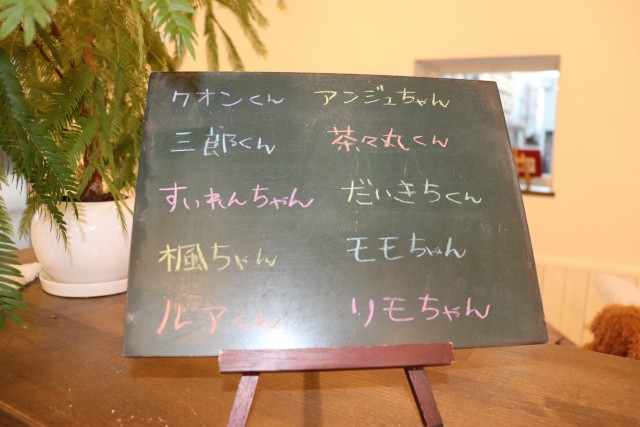 クオンくん アンジュちゃん
三郎くん 茶々丸くん
すいれんちゃん だいきちくん
楓ちゃん モモちゃん
ルアくん リモちゃん